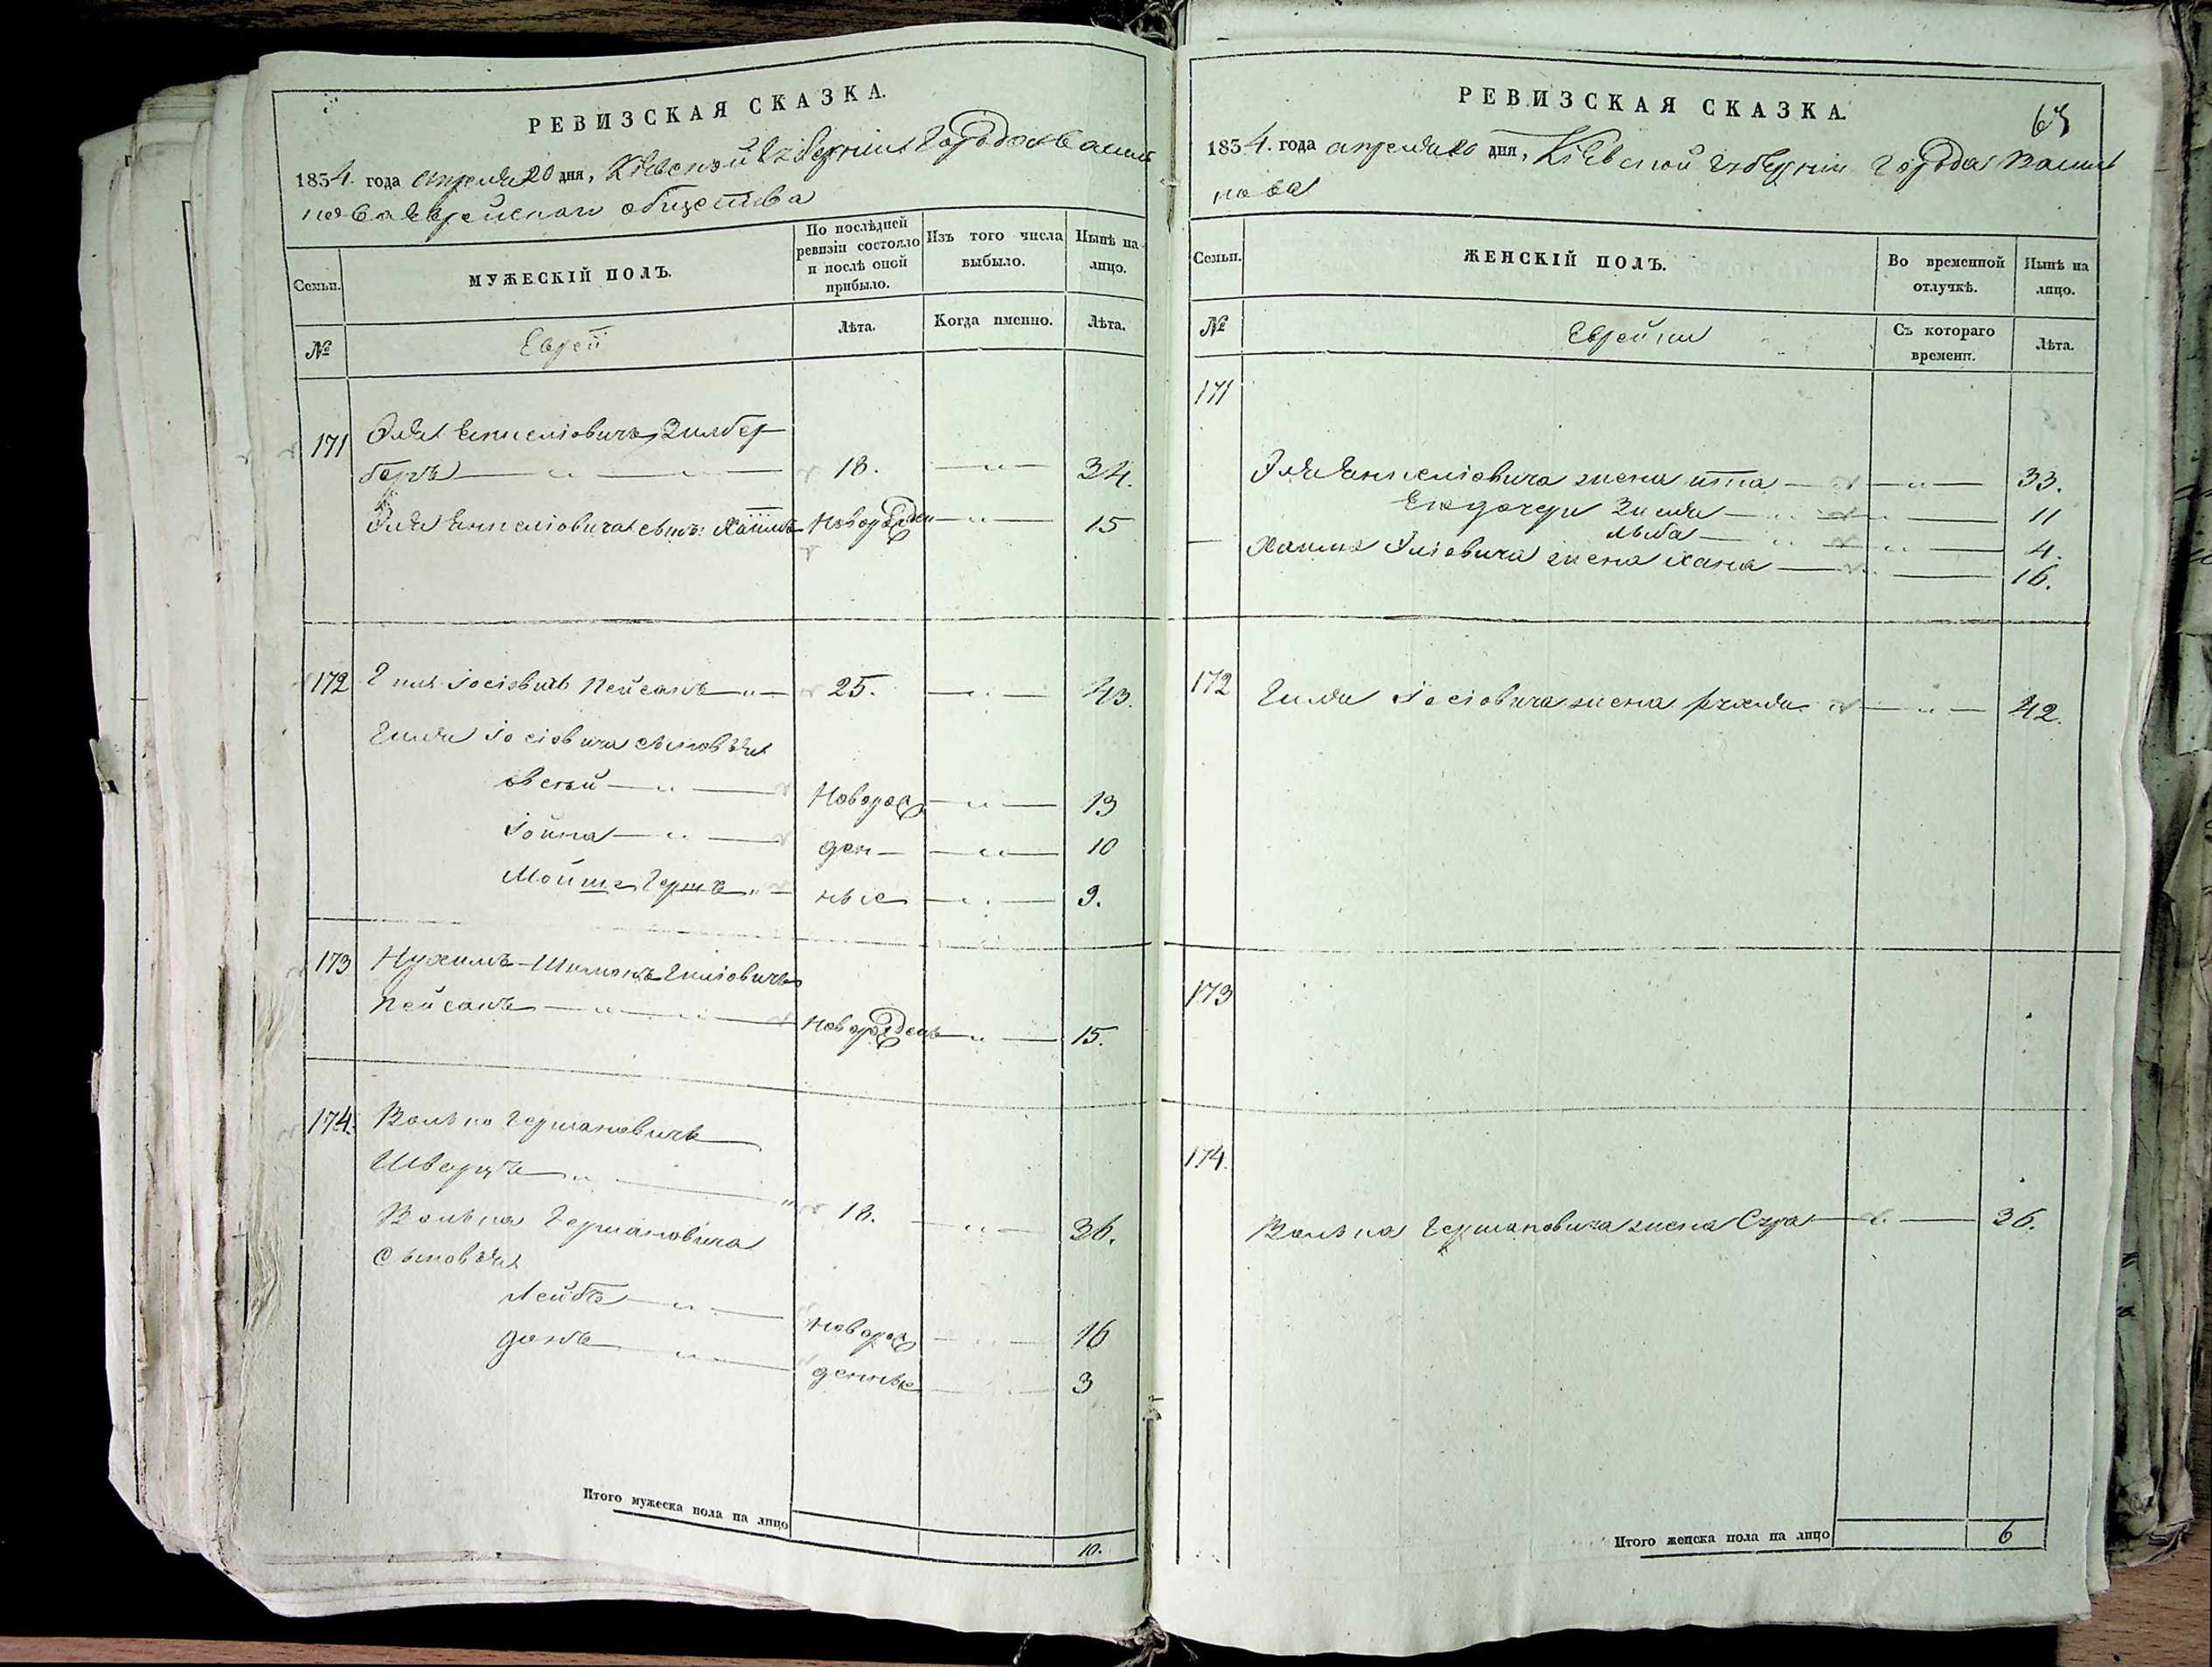 РЕВИЗСКАЯ СКАЗКА.
1854. года апреля 20 дня, Кіевской Губерніи Города Василь
кова Еврейскаго общества
Семьи.
МУЖЕСКІЙ ПОЛЪ.
По послѣдней ревизіи состояло и послѣ оной прибыло.
Изъ того числа выбыло.
Нынѣ на лицо.
№
Еврей
Лѣта.
Когда именно.
Лѣта.
171 Эля Янкеліовичъ Зилбер
бергъ — „ — 18. — „ — 34.
Эля Янкеліовича сынъ: Хаимъ Новорожден — „ — 15
172 Гиля Іосіовичъ Пейсахъ — „ — 25. — „ — 43.
Гиля Іосіовича сыновья
Овсѣй — „ — Новорож — „ — 13
Іойна — „ — ден — „ — 10
Мойше Гершъ „ — ные — „ — 9.
173 Нухимъ-Шимонъ Гиліовичъ
Пейсахъ — „ — Новорожденъ — „ — 15.
174. Волько Гершковичъ
Шварцъ — „ — 18. — „ — 36.
Волька Гершковича
Сыновья
Лейбъ — „ — новорож — „ — 16
— „ — денные — „ — 3
Итого мужеска пола на лицо 10.
РЕВИЗСКАЯ СКАЗКА.
1854. года апреля 20 дня, Кіевской Губерніи Города Василь
кова
Семьи.
ЖЕНСКІЙ ПОЛЪ.
Во временной отлучкѣ.
Нынѣ на лицо.
№
Еврейки
Съ котораго времени.
Лѣта.
171
Эля Янкеліовича жена Итта — „ — 33.
Его дочери Зисля — „ — 11
— „ — 4.
Хаима Эліовича жена Хана — „ — 16.
172 Гиля Іосіовича жена Рухля — „ — 42.
173
174.
Волька Гершковича жена Сура — „ — 36.
Итого женска пола на лицо 6